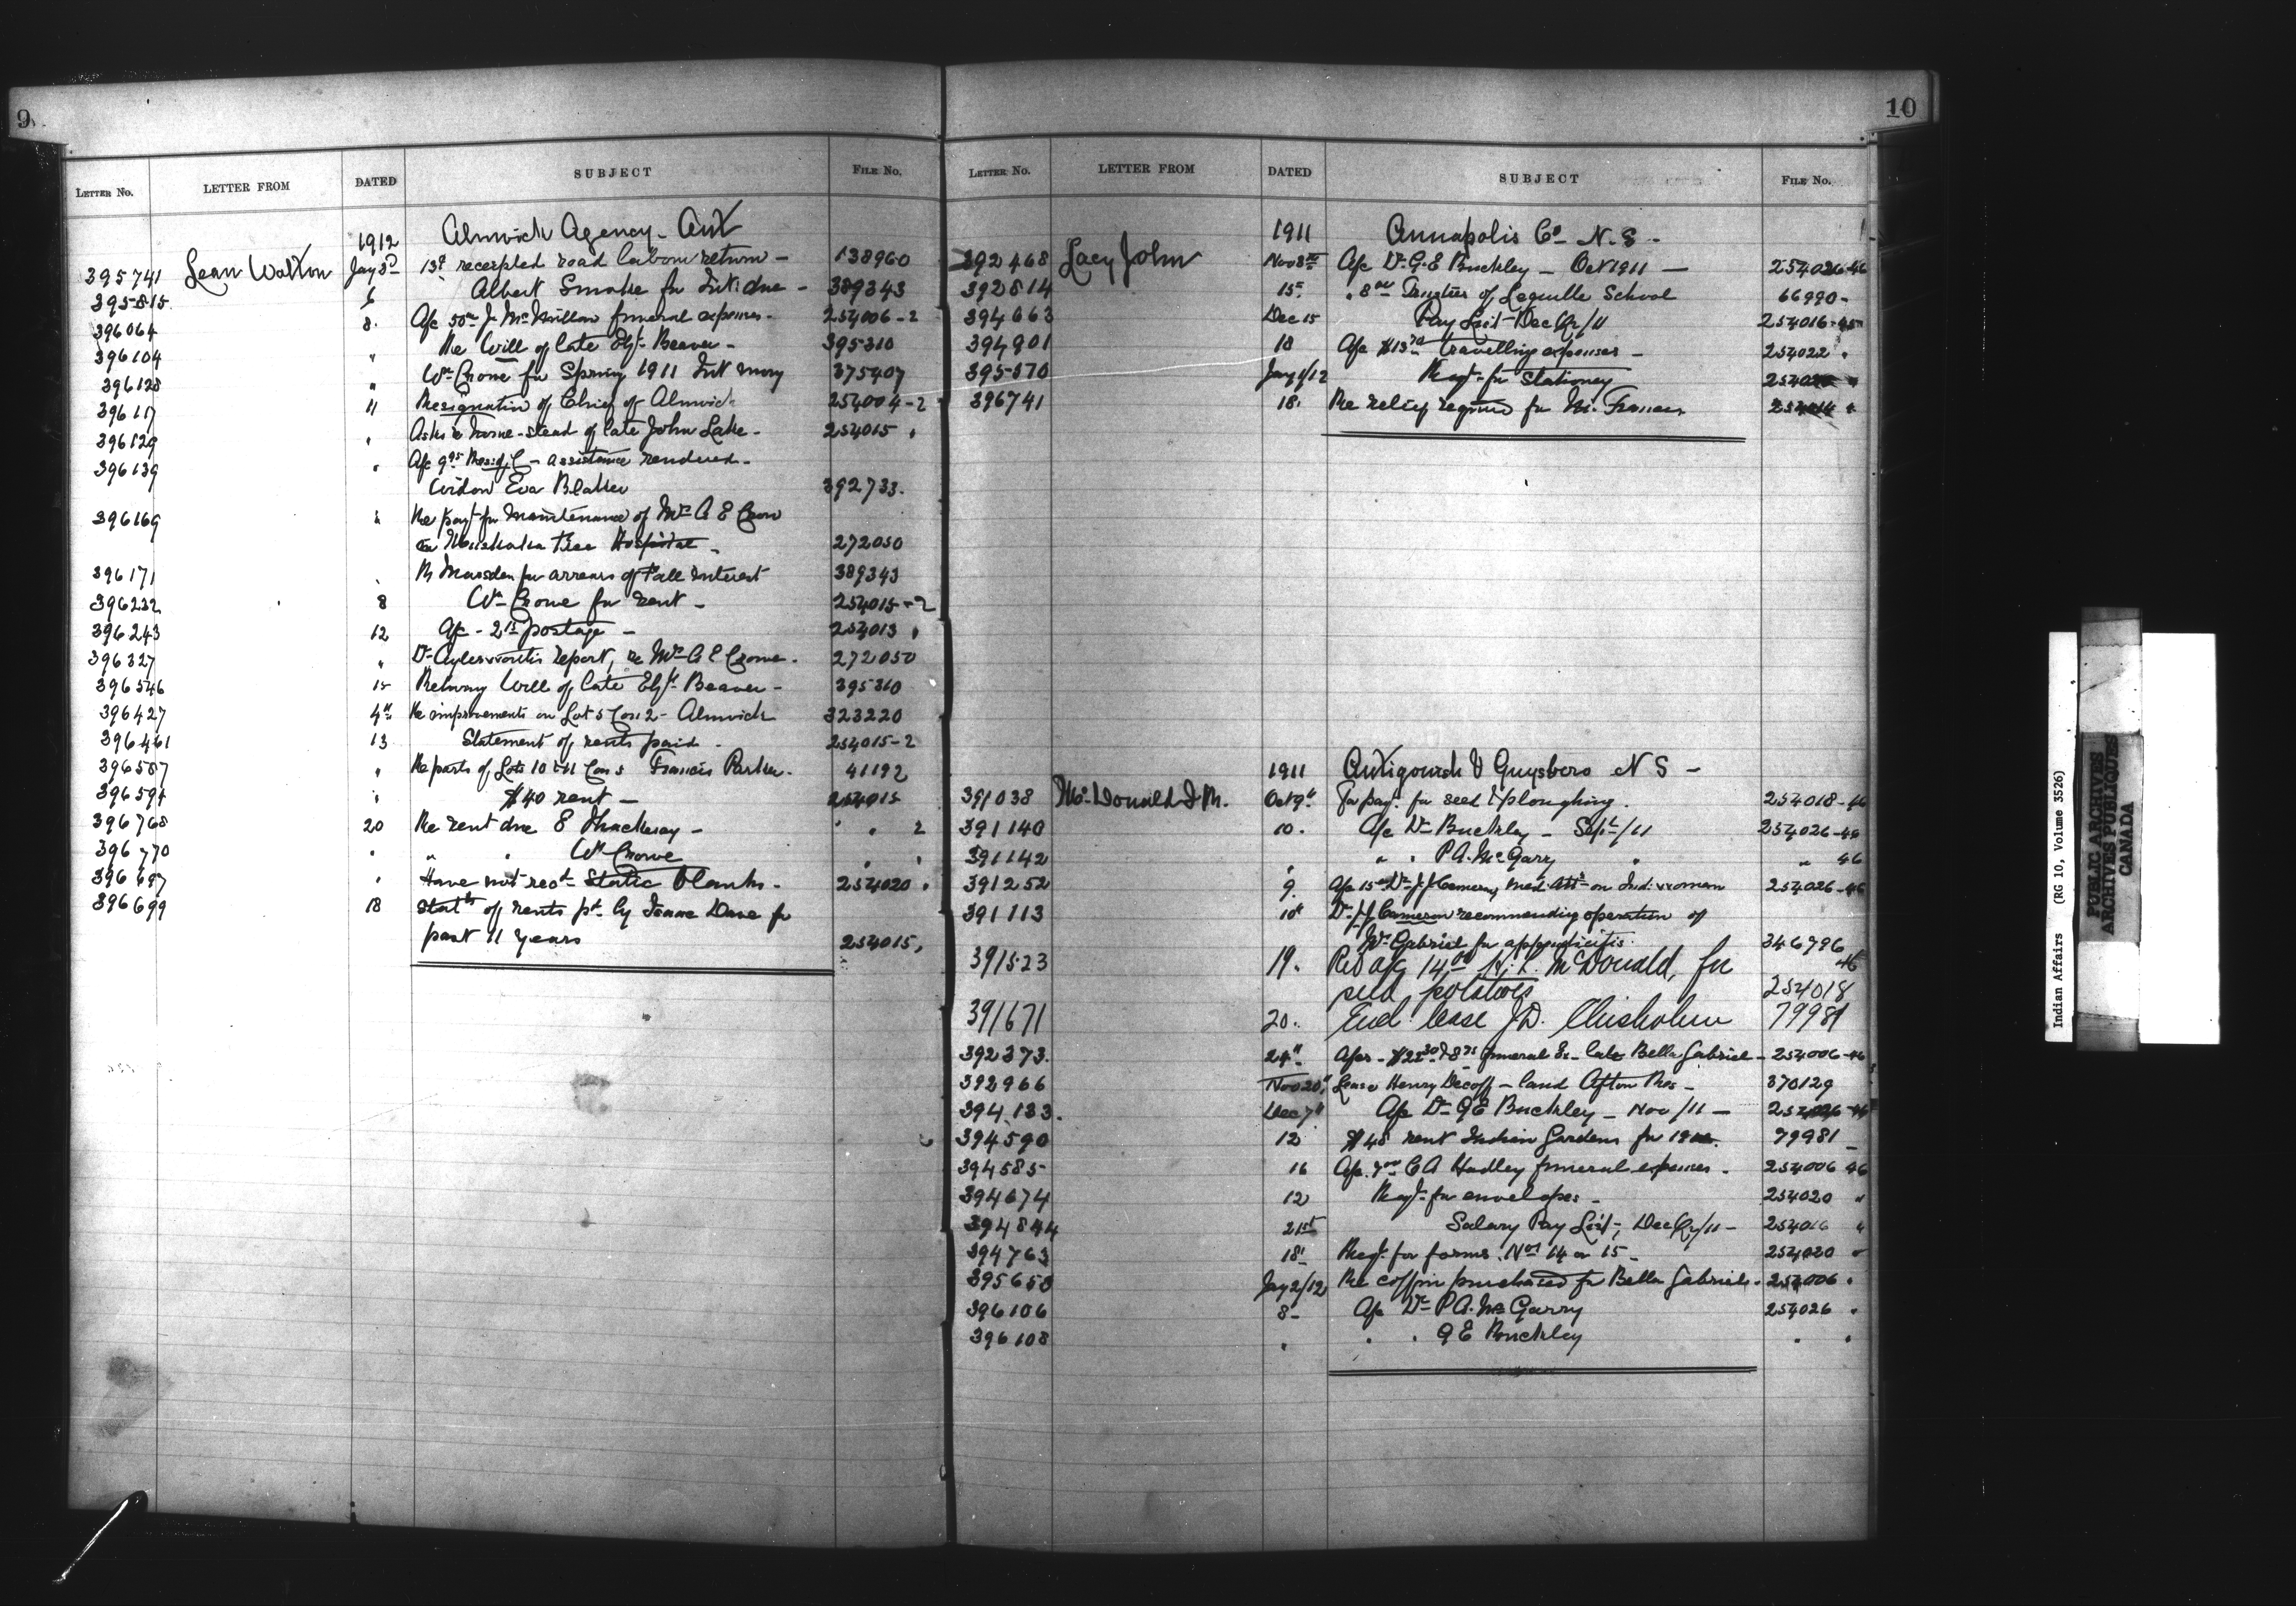 9
LETTER NO. LETTER FROM DATED SUBJECT FILE No.
1912 Alnwick Agency - Ont
395741 Lean Walton Jany 3rd receipted road labour return - 138960
395815 6 Albert Smoke for Int. due - 389343
396064 8. Ajc J. McMillan funeral expenses - 254006-2
396104 " Re Will of late Elzh Beaver - 395310
396128 " Wm Crowe for Spring 1911 Int mony 375407
396117 11 Resignation of Chief of Alnwick 254004-2
396129 " home-stead of late John Lake - 254015 "
396139 " assistance rendered -
Widow Eva Blaker 392733.
396169 " Re payt for maintenance of Mrs A E Crow
Muskoka Free Hospital - 272050
396171 " Marsden for arrears of Fall Interest 389343
396232 8 Wm Crowe for rent - 254015-2
396243 12 Ajc - postage - 254013 "
396327 " Dr Aylesworth's report, re Mrs A E Crowe - 272050
396546 15 Returning Will of late Elzh Beaver - 395310
396427 4th Re improvements on Lot 5 Con 2 - Alnwick 323220
396461 13 Statement of rents paid - 254015-2
396587 " Re parts of Lots 10 & 11 Con 5 Francis Parker - 41192
396594 " $40 rent - 254015
396768 20 Re rent due E Thackeray - " " 2
396770 " " " Wm Crowe " "
396697 " Have not recd Static Blanks - 254020 "
396699 18 Statts of rents pd by Isaac Dave for
past 11 years 254015,
10
LETTER NO. LETTER FROM DATED SUBJECT FILE No.
1911 Annapolis Co - N.S -
392468 Lacy John Nov 8th Ajc Dr G.E Buckley - Oct 1911 - 254026-46
392814 15th " Trustees of Lequille School 66990-
394663 Dec 15 Pay List Dec Qr/11 254016-45
394901 18 Ajc travelling expenses - 254022 "
395570 Jany 1/12 Reqt for Stationery
396741 18. Re relief required for M. Francis 254014 "
1911 Antigonish & Guysboro N S -
391038 McDonald J. R. Oct 9th For payt for seed & ploughing. 254018-46
391140 10. Ajc Dr Buckley - Sept/11 254026-46
391142 " " " P A. McGarry " " 46
391252 9. Ajc Dr J.J. Cameron, Med Att on Ind. woman 254026-46
391113 10" Dr J J Cameron recommending operation of
Gabriel for appendicitis. 346796
391523 19. 14.00 H. L. McDonald, for 46
seed potatoes 254018
391671 20. Encl. lease J.D. Chisholm 79981
392373. 24" funeral Ex - late Bella Gabriel - 254006-46
392966 Nov 20" Lease Henry Decoff - land Afton Res - 370129
394,133. Dec 7" Ajc Dr G E Buckley - Nov/11 -
394590 12 $48 rent Indian Gardens for 79981 -
394585 16 Ajc C A Hadley funeral expenses - 254006 46
394674 12 Reqt for envelopes - 254020 "
394844 21st Salary Pay List, Dec Qr/11 - 254016 "
394763 18' Reqt for forms Nos 14 or 15 - 254020 "
395653 Jany 2/12 Re coffin purchased for Bella Gabriel - 254006 "
396106 8- Ajc Dr P A. McGarry 254026 "
396108 " " " G E Buckley " "
Indian Affairs (RG 10, Volume 3526)
PUBLIC ARCHIVES
ARCHIVES PUBLIQUES
CANADA